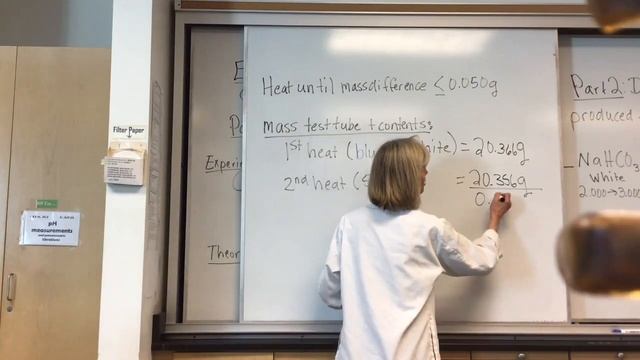 Heat until mass difference ≤ 0.050g
Mass test tube + contents:
1st heat (blu ite) = 20.366g
2nd heat ( = 20.356g
0.
Filter Paper
pH
measurements
Experi
Theor
Part 2: D
produced
- NaHCO3
white
2.000→3.000